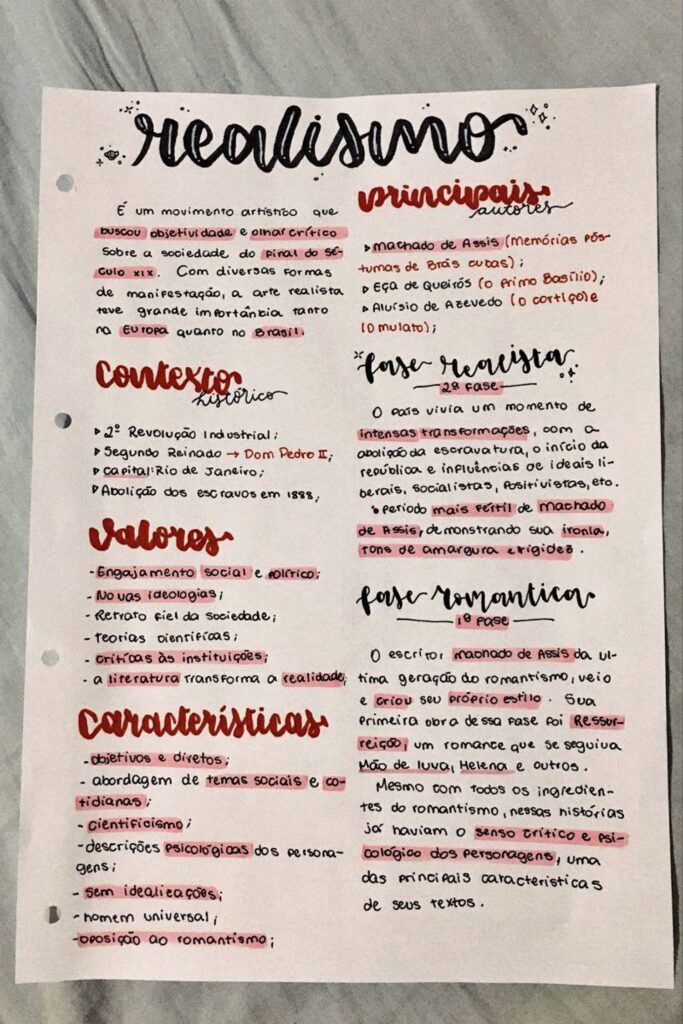 realismo
É um movimento artístico que
buscou objetividade e olhar crítico
sobre a sociedade do final do sé-
culo XIX. Com diversas formas
de manifestação, a arte realista
teve grande importância tanto
na Europa quanto no Brasil.
Contexto
histórico
▸ 2º Revolução Industrial;
▸ Segundo Reinado → Dom Pedro II;
▸ Capital: Rio de Janeiro;
▸ Abolição dos escravos em 1888;
Valores
- Engajamento social e político;
- Novas ideologias;
- Retrato fiel da sociedade;
- teorias científicas;
- críticas às instituições;
- a literatura transforma a realidade;
características
- objetivos e diretos;
- abordagem de temas sociais e co-
tidianas;
- cientificismo;
- descrições psicológicas dos persona-
gens;
- sem idealizações;
- homem universal;
- oposição ao romantismo;
principais
autores
▸ machado de Assis (Memórias Pós-
tumas de Brás cubas);
▸ Eça de Queirós (o primo Basílio);
▸ Aluísio de Azevedo (o cortiço) e
(o mulato);
fase realista
2ª fase
O país vivia um momento de
intensas transformações, com a
abolição da escravatura, o início da
república e influências de ideais li-
berais, socialistas, positivistas, etc.
• período mais fértil de machado
de Assis, demonstrando sua ironia,
tons de amargura e rigidez.
fase romantica
1ª fase
O escritor machado de Assis da úl-
tima geração do romantismo, veio
e criou seu próprio estilo. Sua
primeira obra dessa fase foi Ressur-
reição, um romance que se seguiva
Mão de luva, Helena e outros.
Mesmo com todos os ingredien-
tes do romantismo, nessas histórias
já haviam o senso crítico e psi-
cológico dos personagens, uma
das principais características
de seus textos.